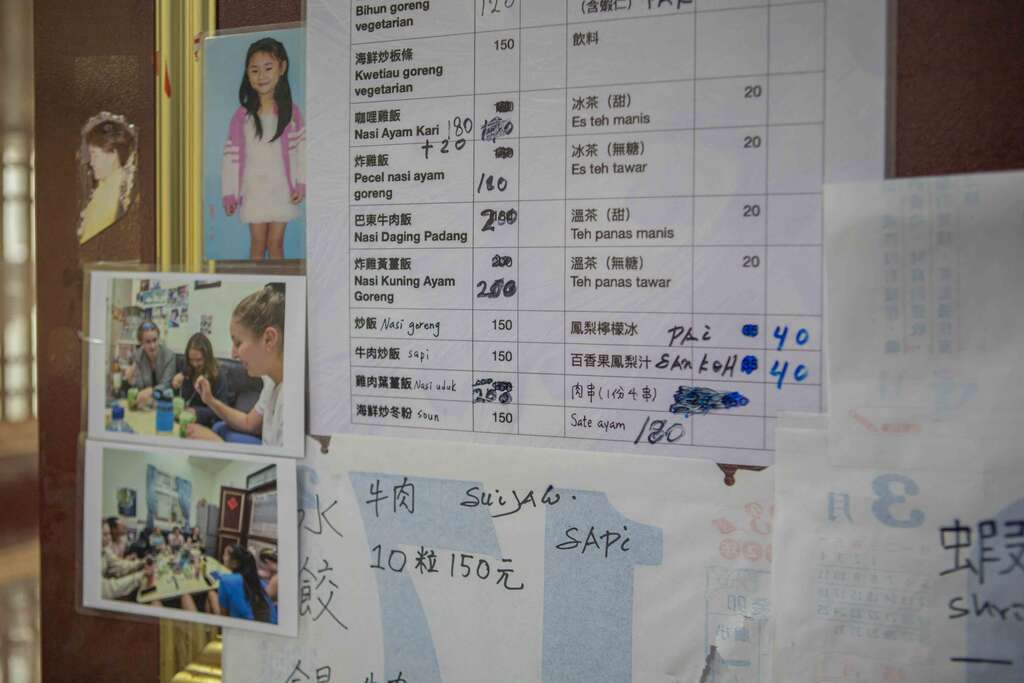 Bihun goreng
vegetarian
120
（含蝦仁）
海鮮炒板條
Kwetiau goreng
vegetarian
150
飲料
咖哩雞飯
Nasi Ayam Kari
180
冰茶（甜）
Es teh manis
20
+20
炸雞飯
Pecel nasi ayam
goreng
180
冰茶（無糖）
Es teh tawar
20
巴東牛肉飯
Nasi Daging Padang
溫茶（甜）
Teh panas manis
20
炸雞黃薑飯
Nasi Kuning Ayam
Goreng
溫茶（無糖）
Teh panas tawar
20
炒飯 Nasi goreng
150
鳳梨檸檬冰
PAi
40
牛肉炒飯 sapi
150
百香果鳳梨汁
40
雞肉葉薑飯 Nasi uduk
肉串(1份4串)
海鮮炒冬粉 soun
150
Sate ayam
180
水餃
牛肉
SuiJAW.
SAPi
10粒150元
3月
蝦